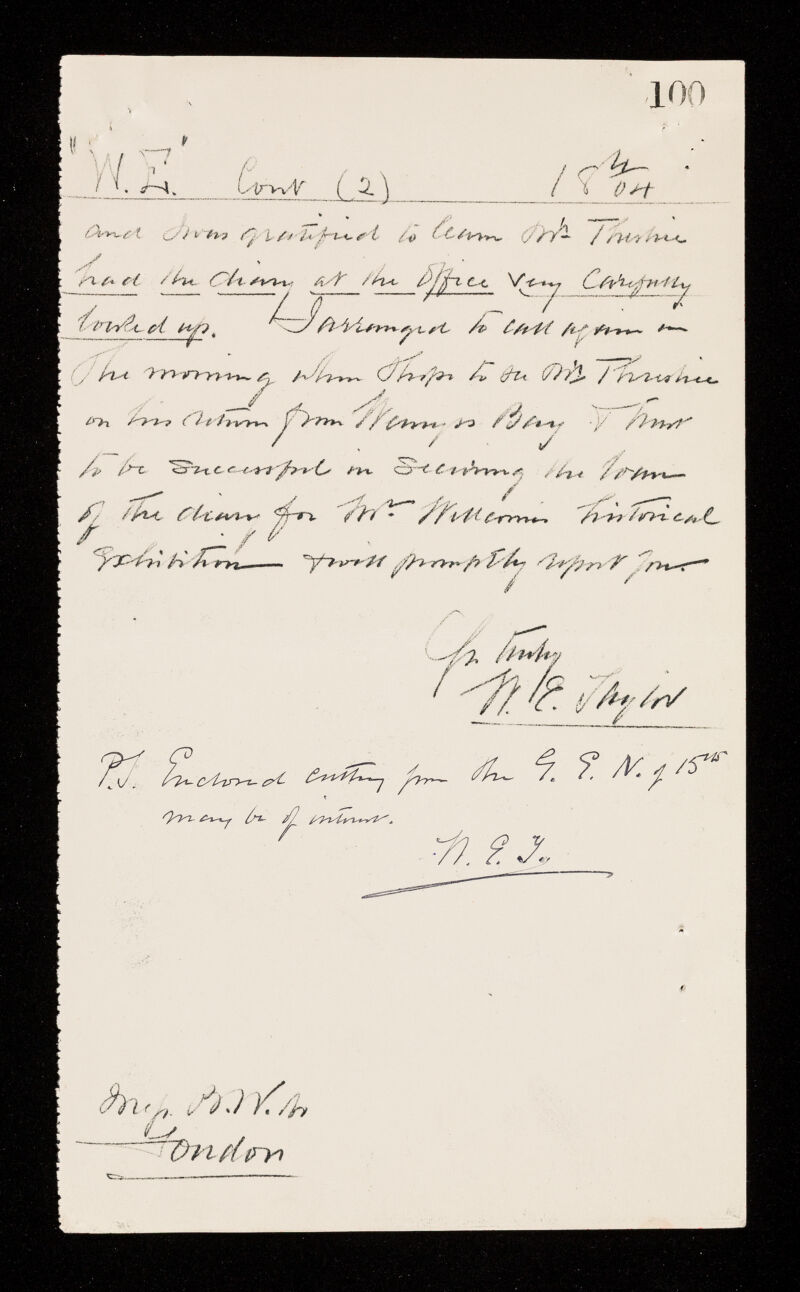 100
"W.E." Cont (2) 18/4/04
and I was gratified to learn Mr. Threshie
had the diary at the office very carefully
locked up. I arranged to call again in
the morning when I hope to see Mr. Threshie
on his return from Wemyss Bay & trust
to be successful in securing the loan
of the diary for Mr. Wellcome's historical
exhibition & will promptly report you.
Yrs truly
W. E. Taylor
P.S. Enclosed cutting from the G. E. N. of 15th
may be of interest.
W. E. T.
Mess. B. W. &
London